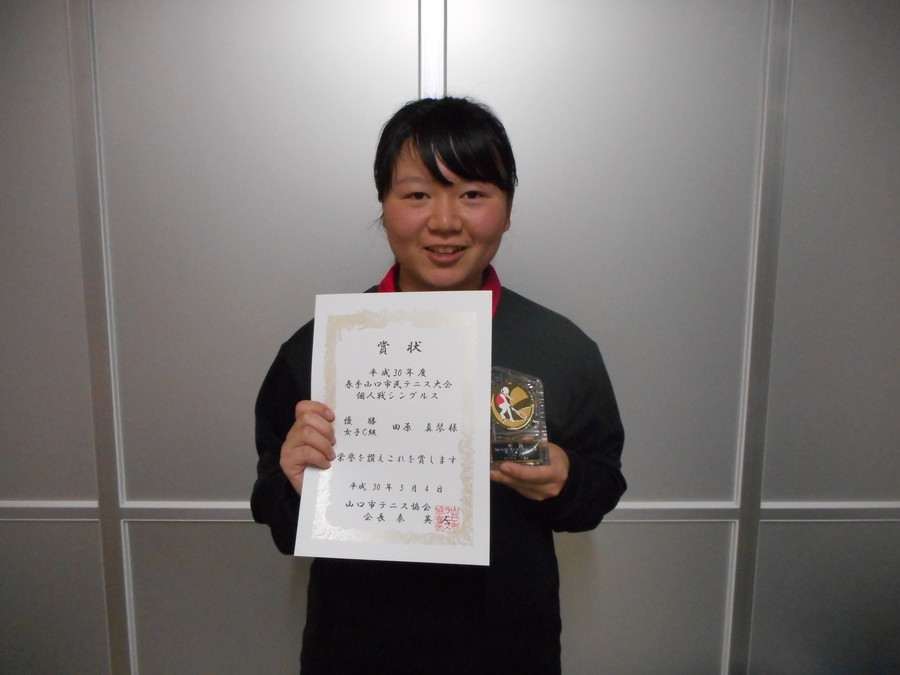 賞状
平成30年度
春季山口市民テニス大会
個人戦シングルス
優勝
女子C級
田原 真琴様
栄誉を讃えこれを賞します
平成30年3月4日
山口市テニス協会
会長 秦 英